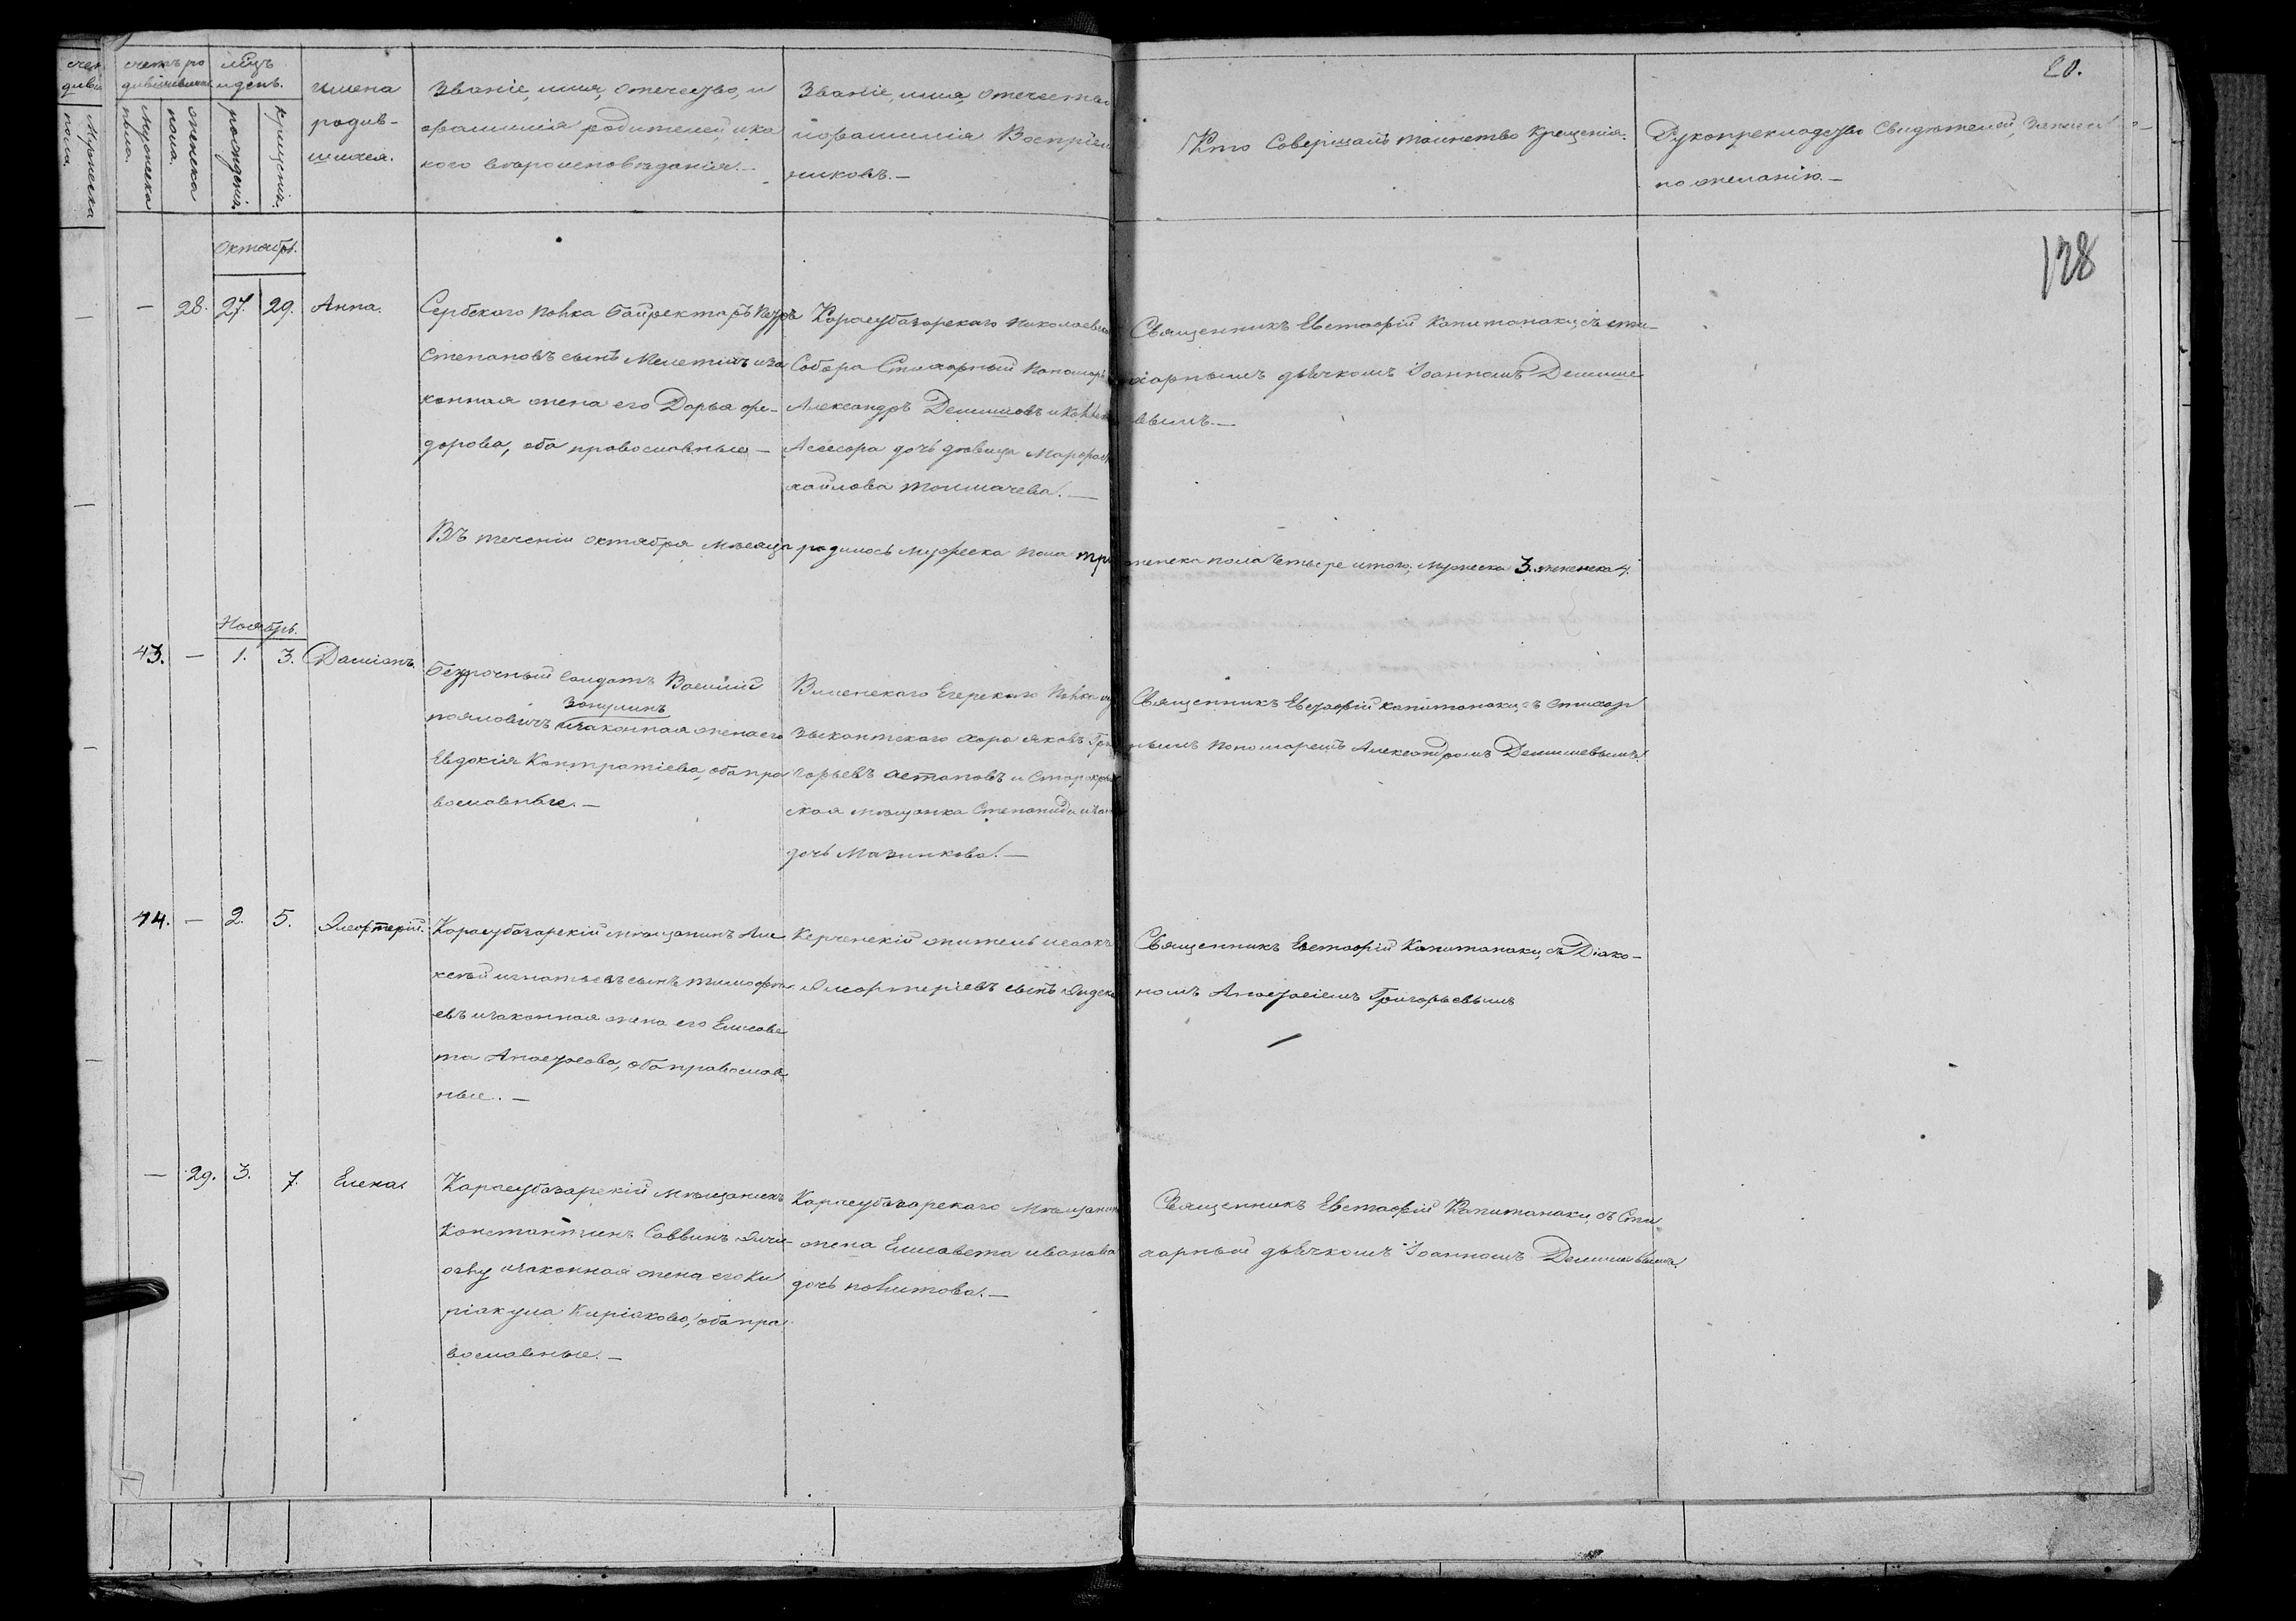 счетъ ро
дившихся
мѣцъ
и день.
имена
родив-
шихся.
Званіе, имя, отечество, и
фамилія родителей, и ка
кого вѣроисповѣданія.—
Званіе, имя, отечество
и фамилія Воспріем
никовъ.—
Кто Совершалъ таинство крещенія.
Рукоприкладство Свидѣтелей, записи
по желанію.—
20.
128
Мужеска
пола.
женска
пола.
рожденія.
крещенія.
Октябрь.
— 28. 27. 29. Анна.
Сербского полка Байректаръ Петръ
Степановъ сынъ Милетичъ и за
конная жена его Дарья Фе-
дорова, оба православные —
Карасубазарскаго Николаевска
Собора Стихарный пономарь
Александръ Демишевъ и Коллеж
Асесора дочь девица Марфа Ми
хайлова Толмачева.—
Священникъ Евстафій Капитанаки, съ сти-
харнымъ дьячкомъ Іоанномъ Демише
вымъ.—
Въ теченіи октября мѣсяца родилось мужеска пола три
женска пола четыре итого, мужеска 3. женска 4.
Ноябрь.
43. — 1. 3. Даміанъ.
безсрочный солдатъ Василій
Занулинъ
и законная жена его
Евдокія Контратіева, оба пра
вославные.—
Виленскаго Егерского полка му
зыкантскаго хора Яковъ Гри
горьевъ Астаповъ и Старокрым
ская мѣщанка Степанида Иван
дочь Мазинкова.—
Священникъ Евстафій Капитанаки, съ стихар
нымъ пономаремъ Александромъ Демишевымъ.
44. — 2. 5. Элефтерій.
Карасубазарскій мѣщанинъ Але
ксѣй Игнатьевъ сынъ Тимофе
евъ и законная жена его Елисаве
та Анастасова, оба православ
ные.—
Керченскій житель Исаакъ
Элефтеріевъ сынъ
Священникъ Евстафій Капитанаки, съ Діако-
номъ Анастасіемъ Григорьевымъ
— 29. 3. 7. Елена.
Карасубазарскій мѣщанинъ
Константинъ Саввинъ
оглу и законная жена его Ки
ріакула Киріакова, оба пра
вославные.—
Карасубазарскаго Мѣщанин
жена Елисавета Иванова
дочь Политова.—
Священникъ Евстафій Капитанаки, съ Сти
харный дьячкомъ Іоанномъ Демишевымъ.